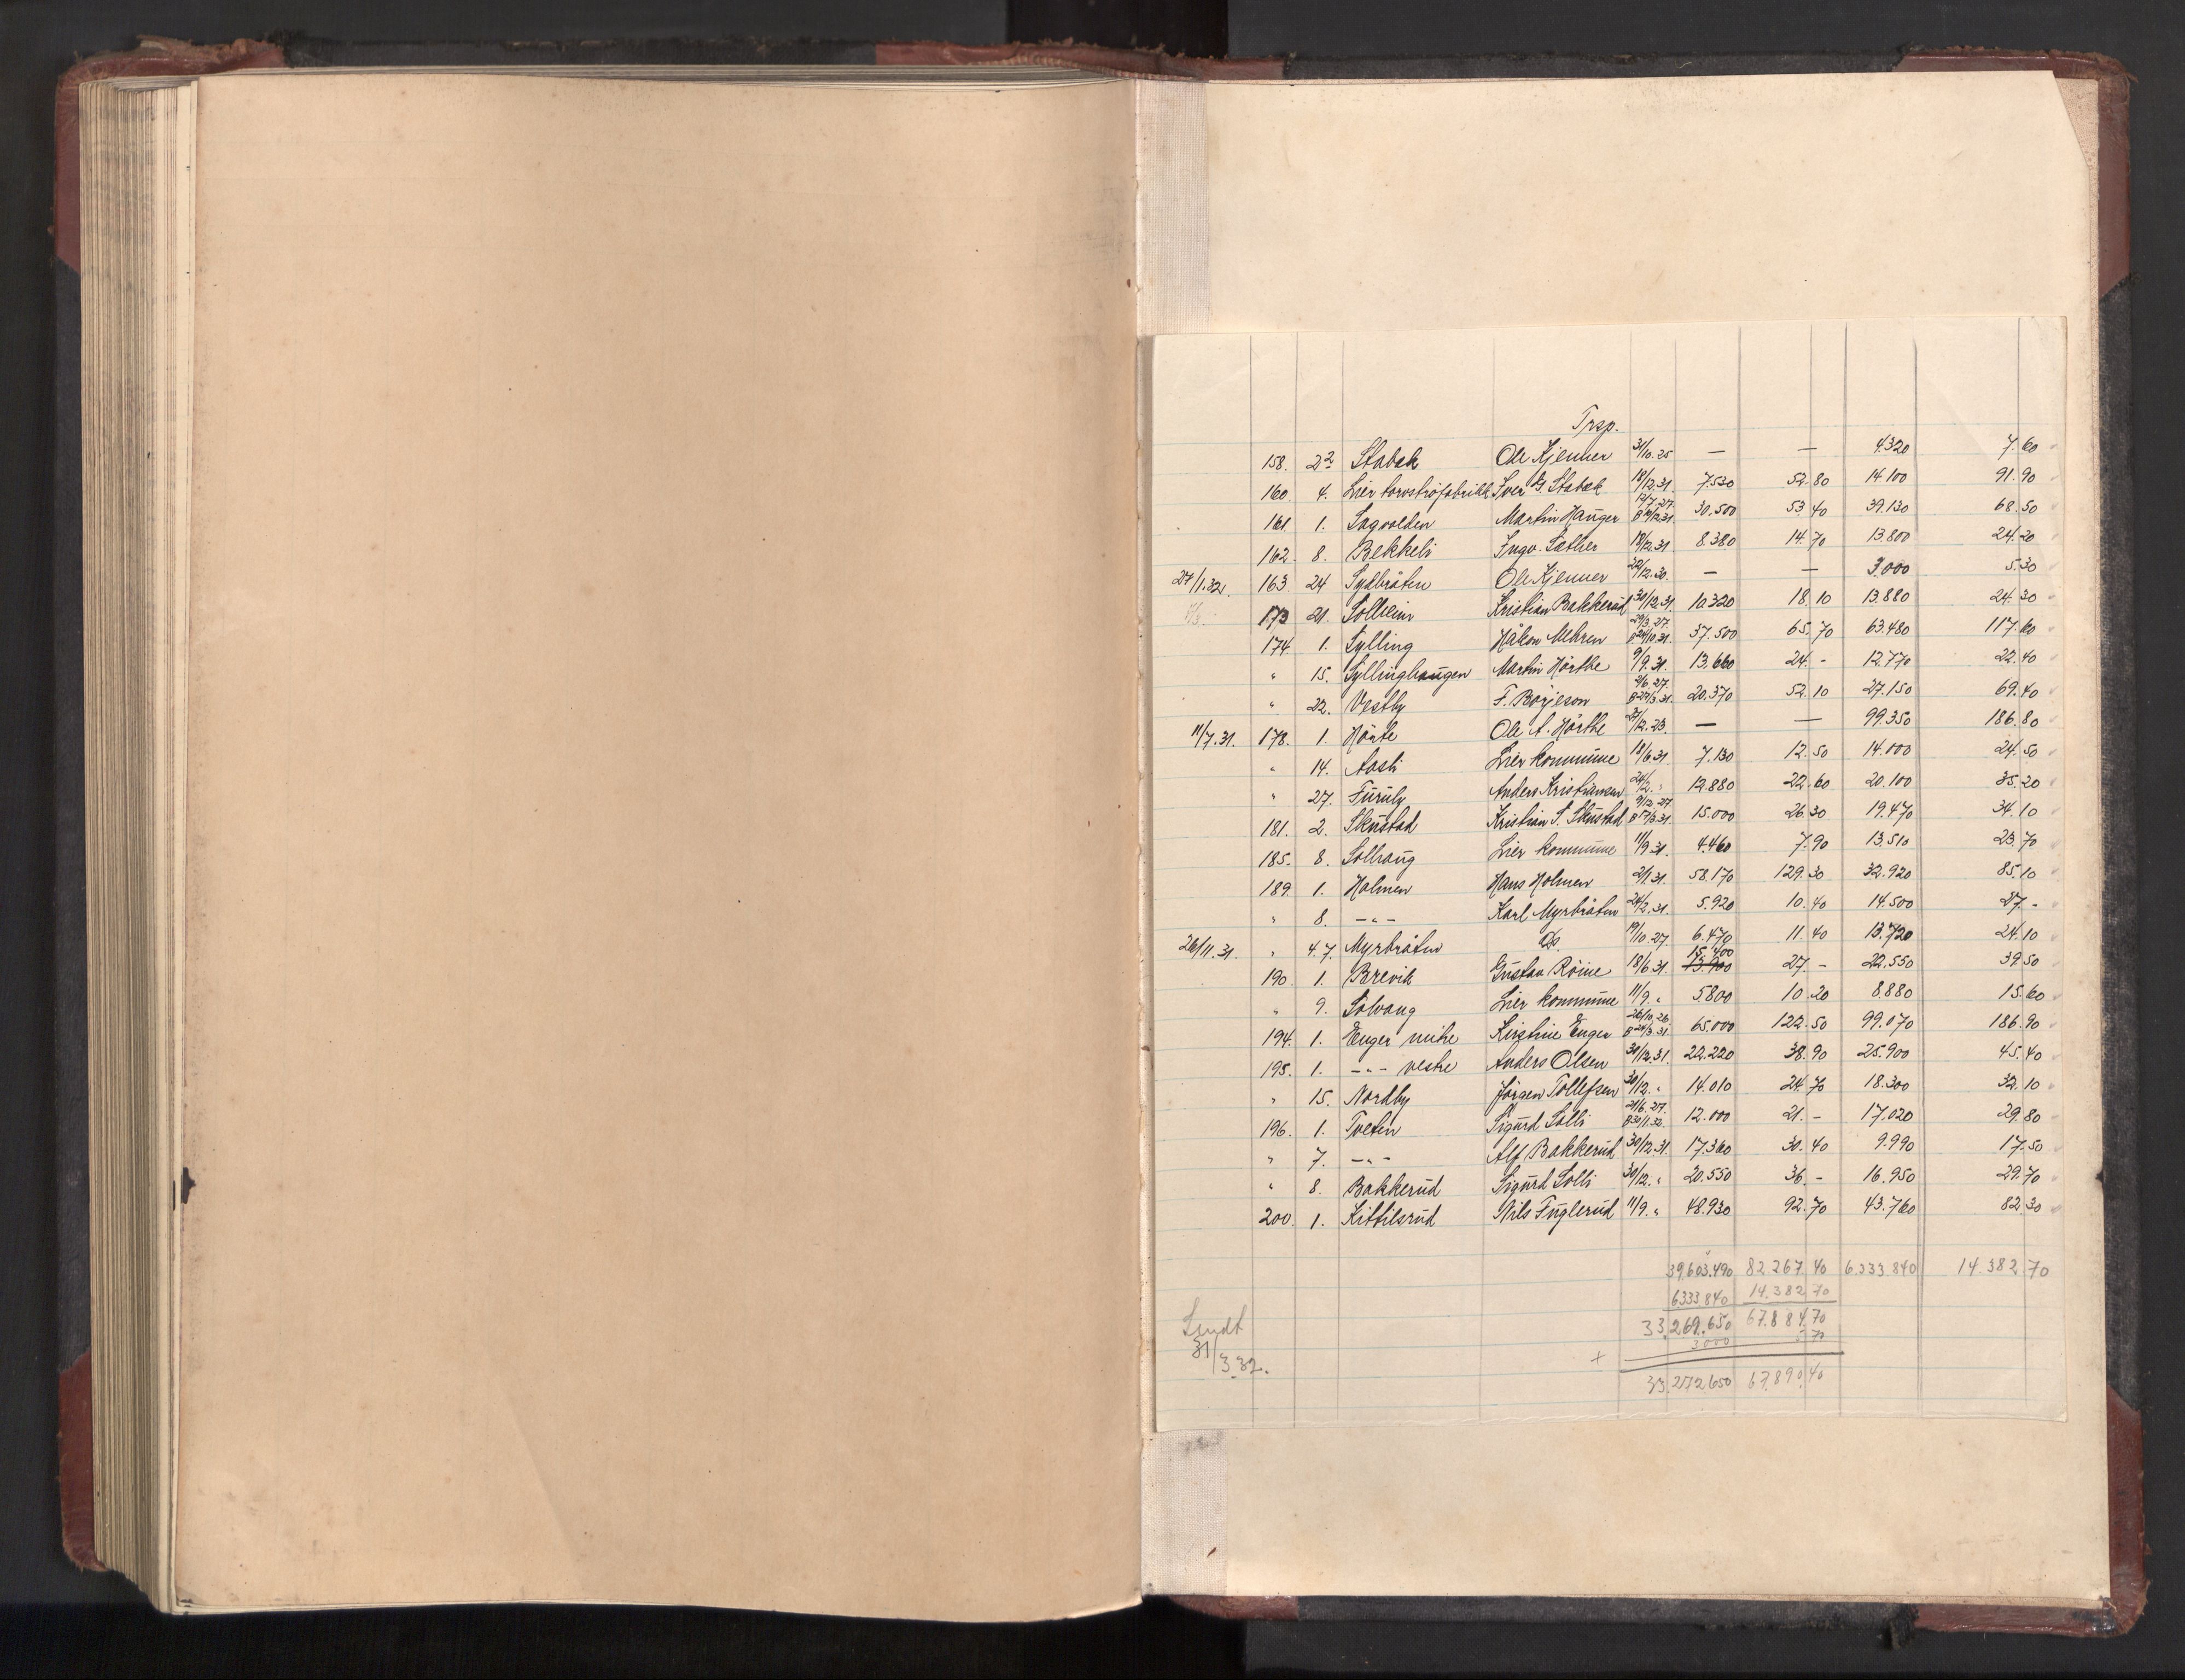 Trsp.
158. 22 Stabæk Ole Kjenner 31/10.25 — — 4.320 7.60
160. 4. Lier torvströfabrikk Iver G. Stabæk 18/12.31. 7.530 52.80 14.100 91.90
161. 1. Sagvolden Martin Hauger 12/7.27. 30.500 53.40 39.130 68.50
162. 8. Bekkeli Ingv. Sæther 18/12.31 8.380 14.70 13.800 24.20
27/1.32. 163 24 Sydbråten Ole Kjenner 22/12.30. — — 3.000 5.30
173 21. Solheim Kristian Bakkerud 30/12.31. 10.320 18.10 13.880 24.30
174. 1. Sylling Håkon Mehren 29/3.27. B24/10.31. 37.500 65.70 63.480 117.60
" 15. Syllinghaugen Martin Hörthe 9/9.31. 13.660 24.- 12.770 22.40
" 22. Vestby F. Börjeson 2/6.27. B27/3.31. 20.370 52.10 27.150 69.40
11/7.31. 178. 1. Hörte Ole A. Hörthe 27/12.23. — — 99.350 186.80
" 14. Aasli Lier kommune 18/6.31. 7.130 12.50 14.000 24.50
" 27. Furuly Anders Kristiansen 24/2. " 12.880 22.60 20.100 35.20
181. 2. Skustad Kristian S. Skustad 9/12.27. B17/3.31. 15.000 26.30 19.470 34.10
185. 8. Solhaug Lier kommune 11/9.31. 4.460 7.90 13.510 23.70
189 1. Holmen Hans Holmen 2/1.31. 58.170 129.30 32.920 85.10
" 8. -"- Karl Myrbråten 24/2.31. 5.920 10.40 14.500 27.-
26/11.31. " 4.7. Myrbråten Do. 19/10.27. 6.470 11.40 13.720 24.10
15.400
190. 1. Brevik Gustav Röine 18/6.31. 13.900 27.- 22.550 39.50
" 9. Solvang Lier kommune 11/9. " 5.800 10.20 8.880 15.60
194. 1. Enger mitre Kirstine Enger 26/10.26. B24/3.31. 65.000 122.50 99.070 186.90
195. 1. -"- vestre Anders Olsen 30/12.31. 22.220 38.90 25.900 45.40
" 15. Nordby Jörgen Tollefsen 30/12. " 14.010 24.70 18.300 32.10
196. 1. Tveten Sigurd Solli 21/6.27. B30/1.32. 12.000 21.- 17.020 29.80
" 7. -"- Alf Bakkerud 30/12.31. 17.360 30.40 9.990 17.50
" 8. Bakkerud Sigurd Solli 30/12. " 20.550 36.- 16.950 29.70
200. 1. Kittilsrud Nils Fuglerud 11/9. " 48.930 92.70 43.760 82.30
39.603.490 82.267 40 6.333.840 14.382 70
6333.840 14.382 70
33.269.650 67.884.70
3000 5 70
+
33.272.650 67.890.40
Sendt
31/3.32.